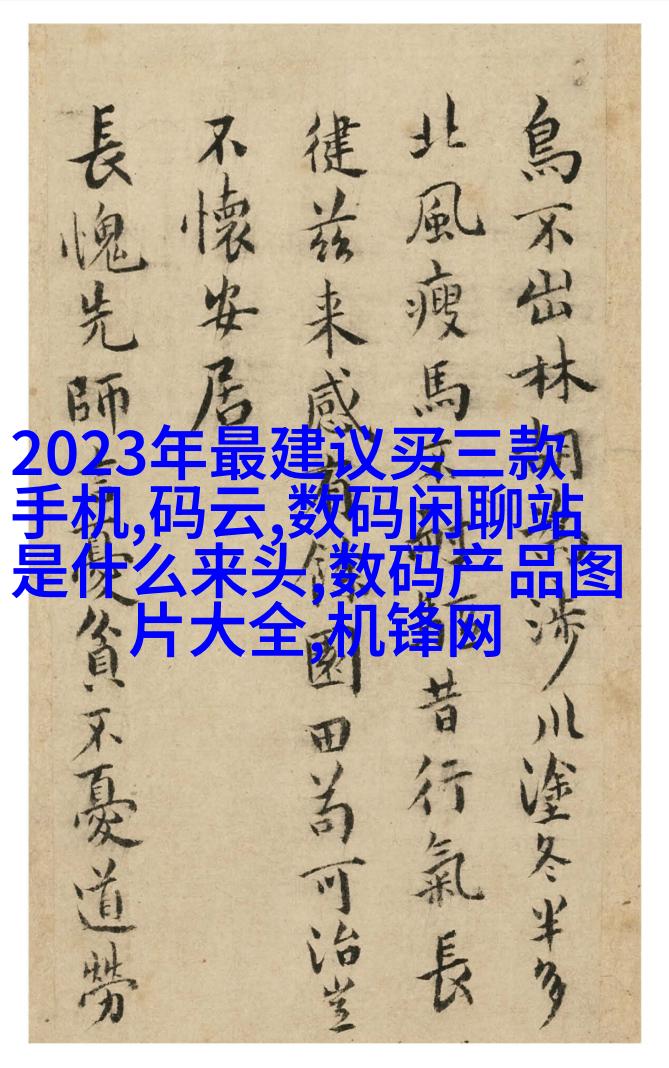 鳥不出林朝涉川塗冬半多
北風瘦馬昔行氣長
徤茲来感園田苟可治豈
不懷安居
長愧先師憂貧不憂道勞
2023年最建议买三款
手机,码云,数码闲聊站
是什么来头,数码产品图
片大全,机锋网